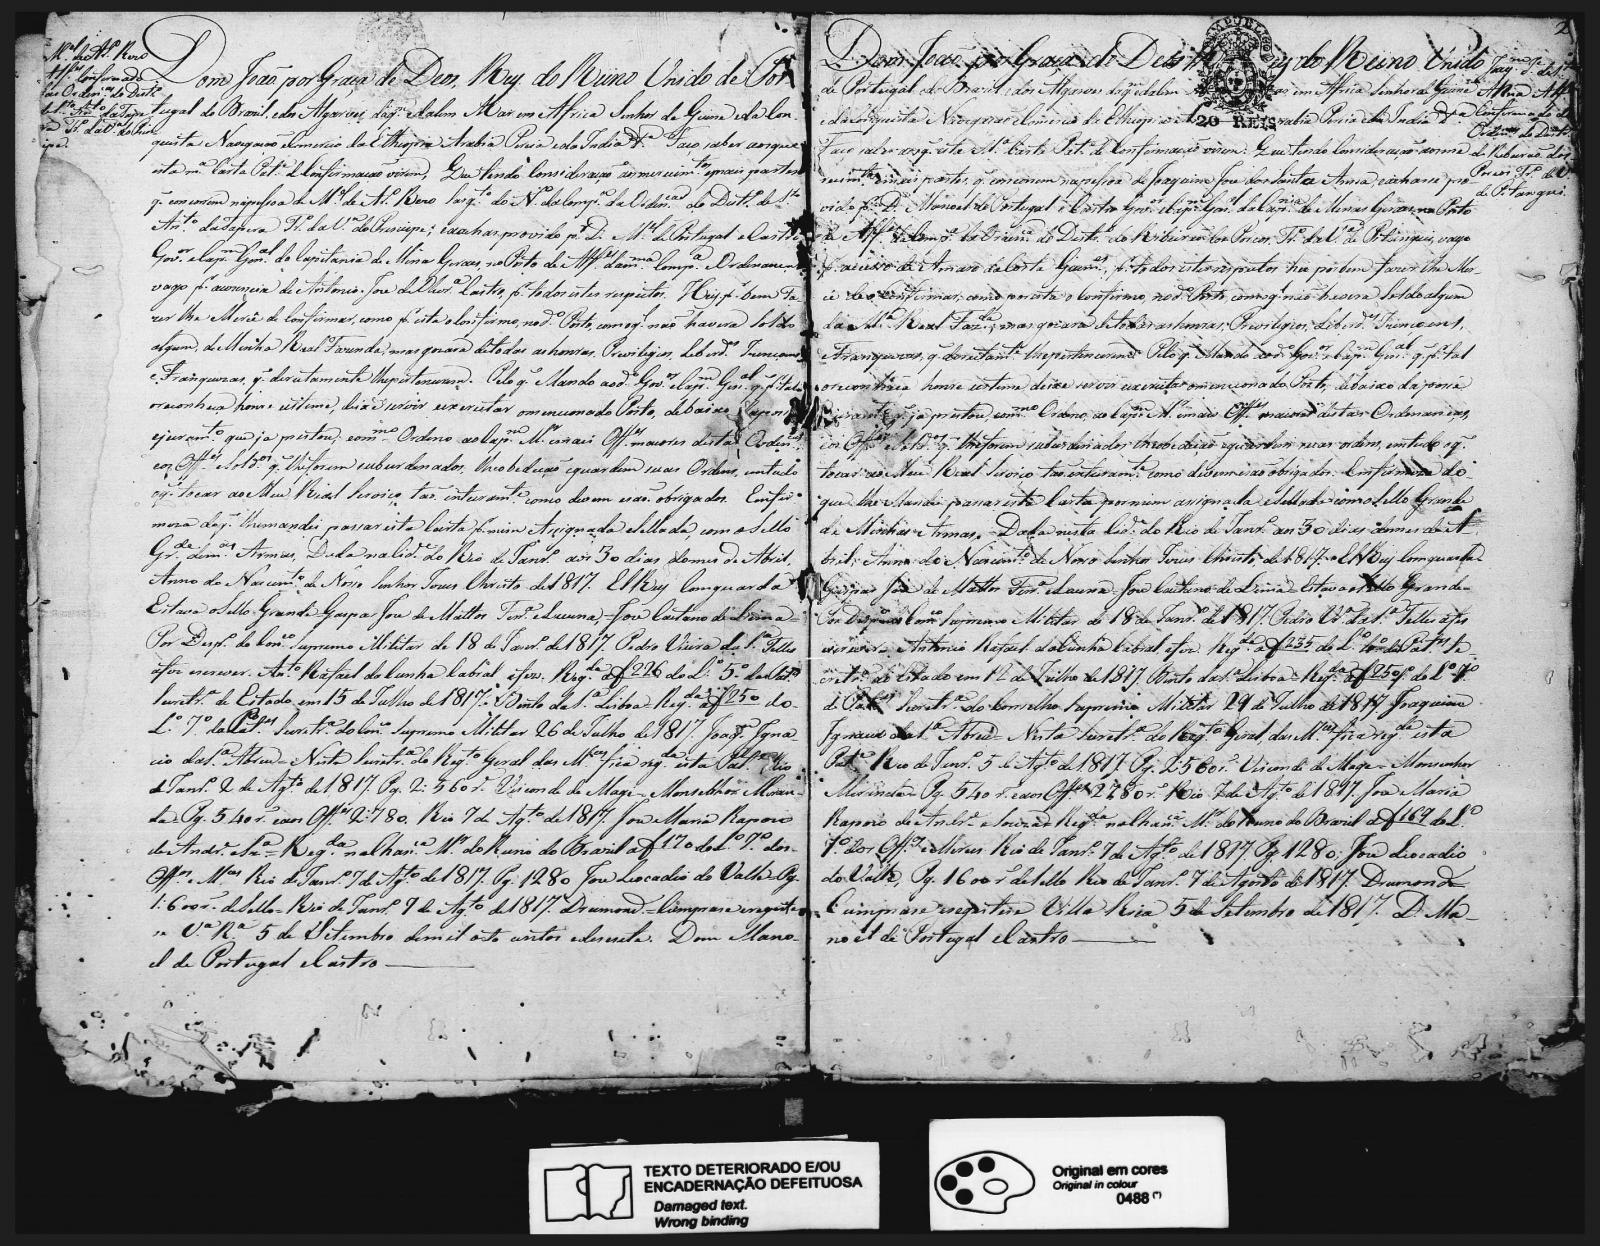 M.el de Az.o Rero
Alferes Confirmado
das Orden.as do Dest.o
de S.to Ant.o da Tape
ra T.o da V.a do Prin
cipe.
Dom João por Graça de Deos, Rey do Reino Unido de Por
tugal do Brazil, e dos Algarves, daq.m e dalem Mar em Africa Senhor de Guine e da Con
quista Navegação Comercio da Ethiopia Arabia Percia e da India &.a Faço saber aos que
esta m.a Carta Pat.e de Confirmação virem, Que tendo consideração ao merecim.to e mais partes
q. concorrem na pessoa de M.el de Az.o Rero Sarg.to do N.o da Comp.a da Orden.ca do Dist.o de S.to
Ant.o da Tapera T.o da V.a do Principe; e achar provido p.r D. M.el de Portugal e Castro
Gov.or e Cap.m Gen.al da Capitania de Minas Geraes, no Posto de Alf.es da m.ma Comp.a e Ordenança
vago p.r auzencia de Antonio Jose de Oliv.a Castro, p.r todos estes respeitos. Hey p.r bem fa
zer lhe Mercê de confirmar, como p.r esta o confirmo, no d.o Posto, com o q. não haverá soldo
algum, de Minha Real Fazenda, mas gozará de todas as honras, Privilegios, Liberd.es Izençoens
e Franquezas, q. direitamente lhe pertencerem. Pelo q. Mando ao d.o Gov.or e Cap.m Gen.al q. p.r tal
o reconheça honre e estime, deixe servir e exercitar o mencionado Posto, debaixo da posse
e juram.to que já prestou, e o m.mo Ordeno ao Cap.m M.or e mais Off.es maiores destas Orden.as
e os Off.es e Sold.os q. lhe forem subordenados lhe obedeção e guardem suas Ordens, em tudo
o q. tocar ao Meu Real Serviço, tão inteiram.te como devem e são obrigados. Em fir
meza do q. lhe mandei passar esta Carta p.r mim Assignada e Sellada, com o Sello
Gr.de de m.as Armas. Dada na Cid.e do Rio de Janr.o aos 30 dias do mes de Abril,
Anno do Nascim.to de Nosso Senhor Jesus Christo de 1817. ElRey Com guarda
Estava o Sello Grande Gaspar Jose de Mattos Ferr.a e Lucena = Jose Caetano de Lima =
Por Desp.o do Con.o Supremo Militar de 18 de Janr.o de 1817. Pedro Vieira da S.a Telles
a fez escrever. Ant.o Rafael da Cunha Cabral a fez. Reg.da a f 226 do L.o 5.o de Pat.es
Secretr.a de Estado em 15 de Julho de 1817. Bento da S.a Lisboa Reg.da a f 250 do
L.o 7.o de Pat.es Secretr.a do Con.o Supremo Militar 26 de Julho de 1817. Joaq.m Igna
cio da S.a Abreu = Nesta Secretr.a do Reg.to Geral das M.ces fica reg.da esta Pat.e Rio
de Janr.o 2 de Ag.to de 1817. Pg. 2:560 r.s Visconde de Mage = Monsenhor Miran
da Pg. 540 r.s e aos Off.es 2:780. Rio 7 de Ag.to de 1817. Jose Maria Rapozo
de Andr.e e Sz.a = Reg.da na Chan.a M.r do Reino do Brazil a f 170 do L.o 7.o dos
Off.os e M.ces Rio de Janr.o 7 de Ag.to de 1817. Pg. 1280 Jose Leocadio do Valle = Pg.
1:600 r.s de Sello = Rio de Janr.o 7 de Ag.to de 1817. Drumond = Cumprase e registe
se V.a R.a 5 de Setembro de mil oito centos e desesete. Dom Mano
el de Portugal e Castro
2
Dom João por Graça de Deos Rey do Reino Unido
20 REIS
Joaq.m Je. de S.ta
Anna Alf.es
Confirmado da
Orden.ca do Dist.o
do Ribeirão dos
Porcos T.o da V.a
de Pitangui.
de Portugal do Brazil e dos Algarves daq.m e dalem Mar em Africa Senhor de Guine
e da Conquista Navegação Comercio da Ethiopia Arabia Percia e da India &.a
Faço saber aos q. esta m.a Carta Pat.e de Confirmação virem. Que tendo consideração ao me
recim.to e mais partes, q. concorrem na pessoa de Joaquim Jose de Santa Anna, e achar se pro
vido p.r D. Manoel de Portugal e Castro Gov.or e Cap.m Gen.al da Cap.nia de Minas Geraes no Posto
de Alf.es da Comp.a da Orden.ca do Dest.o do Ribeirão dos Porcos, T.o da V.a de Pitangui, vago
p.r acesso de Amaro da Costa Guim.es, p.r todos estes respeitos hei por bem fazer lhe Mer
cê de o confirmar, como por esta o confirmo, no d.o Posto, com o q. não haverá soldo algum
da M.a Real Faz.da, mas gozará de todas as honras, Privilegios, Liberd.es Izençoens,
e Franquezas, q. direitam.te lhe pertencerem. Pelo q. Mando ao d.o Gov.or e Cap.m Gen.al q. p.r tal
o reconheça honre e estime deixe servir e exercitar o mencionado Posto, debaixo da posse
e juram.to q. já prestou, e o m.mo Ordeno ao Cap.m M.or e mais Off.es maiores destas Ordenanças,
e os Off.es e Sold.os q. lhe forem subordenados lhe obedeção e guardem suas ordens, em tudo o q.
tocar ao Meu Real Serviço tão inteiram.te como devem e são obrigados. Em firmeza do
que lhe Mandei passar esta Carta por mim assignada e Sellada com o Sello Grande
de Minhas Armas. Dada nesta Cid.e do Rio de Janr.o aos 30 dias do mes de A
bril, Anno do Nascim.to de Nosso Senhor Jesus Christo de 1817. ElRey Com guarda
Gaspar Jose de Mattos Ferr.a e Lucena = Jose Caetano de Lima = Estava o Sello Grande =
Por Desp.o do Con.o Supremo Militar de 18 de Janr.o de 1817. Pedro V.a da S.a Telles a fes
escrever. Antonio Rafael da Cunha Cabral a fez. Reg.da a f 235 do L.o 5.o de Pat.es Se
cretr.a de Estado em 12 de Julho de 1817. Bento da S.a Lisboa = Reg.da a f 250 do L.o 7.o
de Pat.es Secretr.a do Conselho Supremo Militar 29 de Julho de 1817. Joaquim
Ignacio da S.a Abreu = Nesta Secretr.a do Reg.to Geral, das M.ces fica reg.da esta
Pat.e Rio de Janr.o 5 de Ag.to de 1817. Pg. 2:560 r.s Visconde de Mage = Monsenhor
Miranda = Pg. 540 r.s e aos Off.es 2780 r.s Rio 7 de Ag.to de 1817. Jose Maria
Rapozo de Andr.e e Souza = Reg.da na Chan.a M.r do Reino do Brazil a f 169 do L.o
7.o dos Off.os e Merces Rio de Janr.o 7 de Ag.to de 1817. Pg. 1280. Jose Leocadio
do Valle, Pg. 1600 r.s de Sello Rio de Janr.o 7 de Agosto de 1817. Drumond =
Cumprase e registese Villa Rica 5 de Setembro de 1817. D. Ma
noel de Portugal e Castro
TEXTO DETERIORADO E/OU
ENCADERNAÇÃO DEFEITUOSA
Damaged text.
Wrong binding
Original em cores
Original in colour
0488 (*)